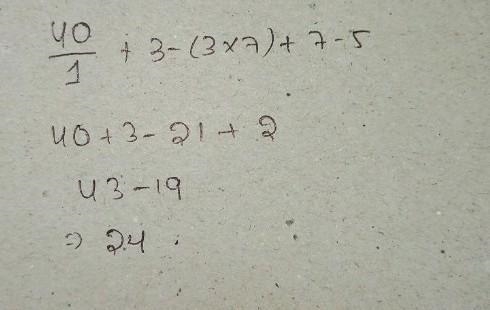 40/1 + 3-(3×7)+ 7-5
40+3-21+2
43-19
⇒ 24.